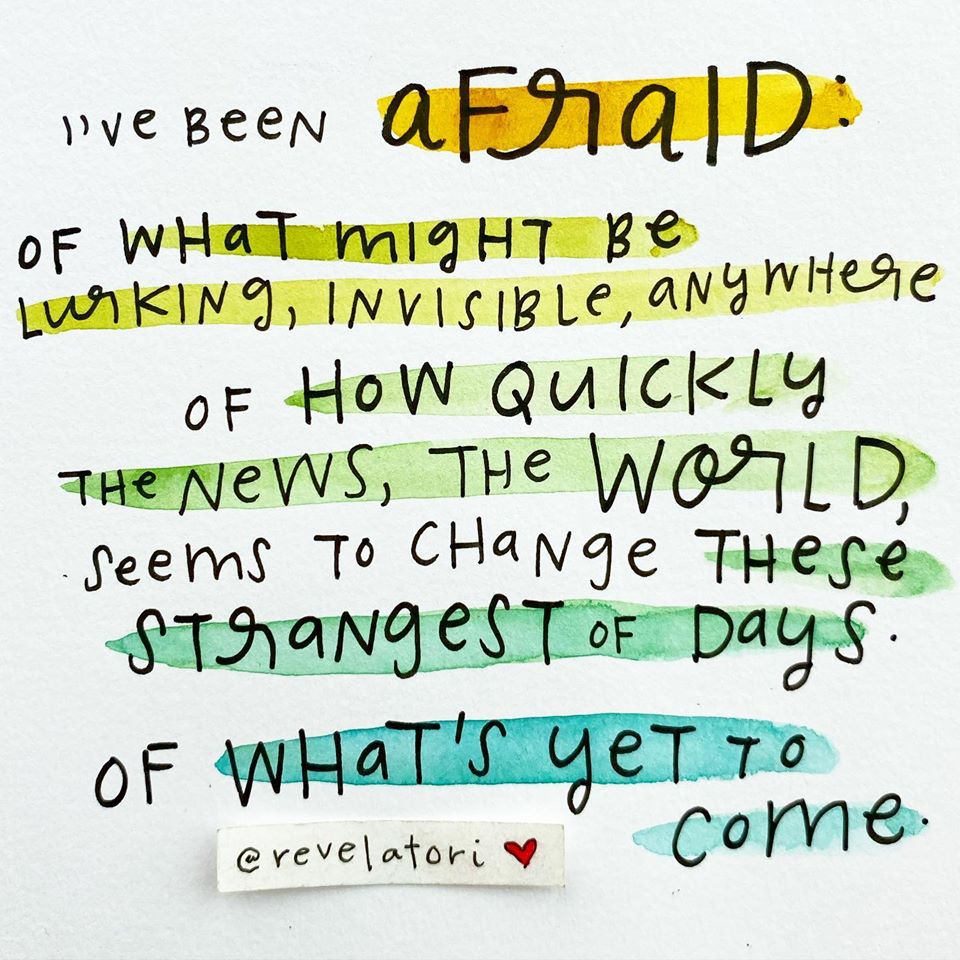 I'VE BEEN AFRAID:
OF WHAT MIGHT BE
LURKING, INVISIBLE, ANYWHERE
OF HOW QUICKLY
THE NEWS, THE WORLD,
SEEMS TO CHANGE THESE
STRANGEST OF DAYS.
OF WHAT'S YET TO
COME.
@revelatori ♥